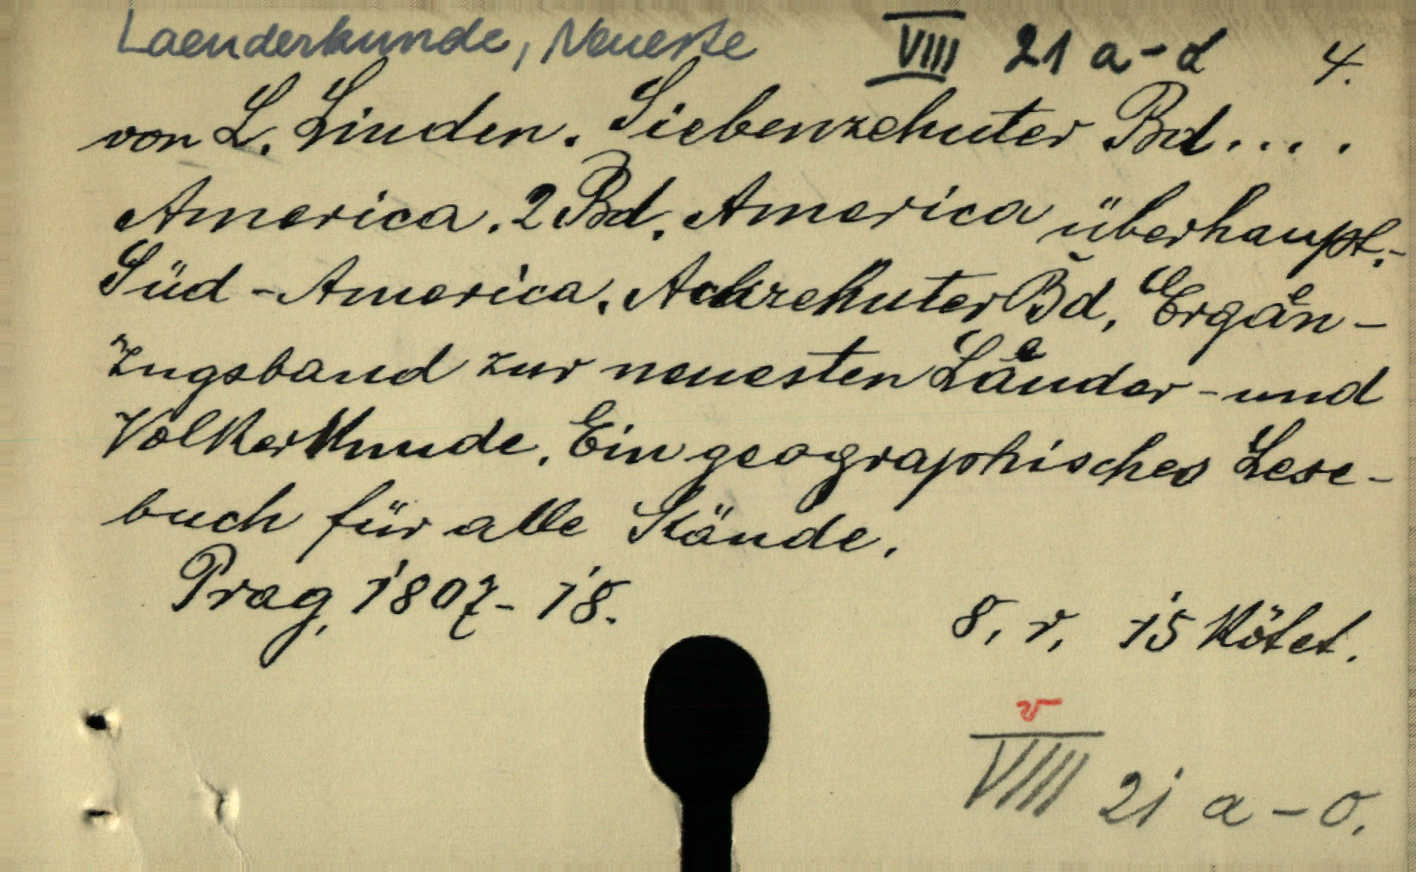 Laenderkunde, Neueste VIII 21 a-d 4.
von L. Linden. Siebenzehnter Bd....
America. 2 Bd. America überhaupt.-
Süd-America. Achzehnter Bd, Ergän-
zugsband zur neuesten Länder-und
Völkerkunde. Ein geographisches Lese-
buch für alle Stände.
Prag, 1807-18.
8. r. 15 Kötet.
v
VIII 21 a-o.